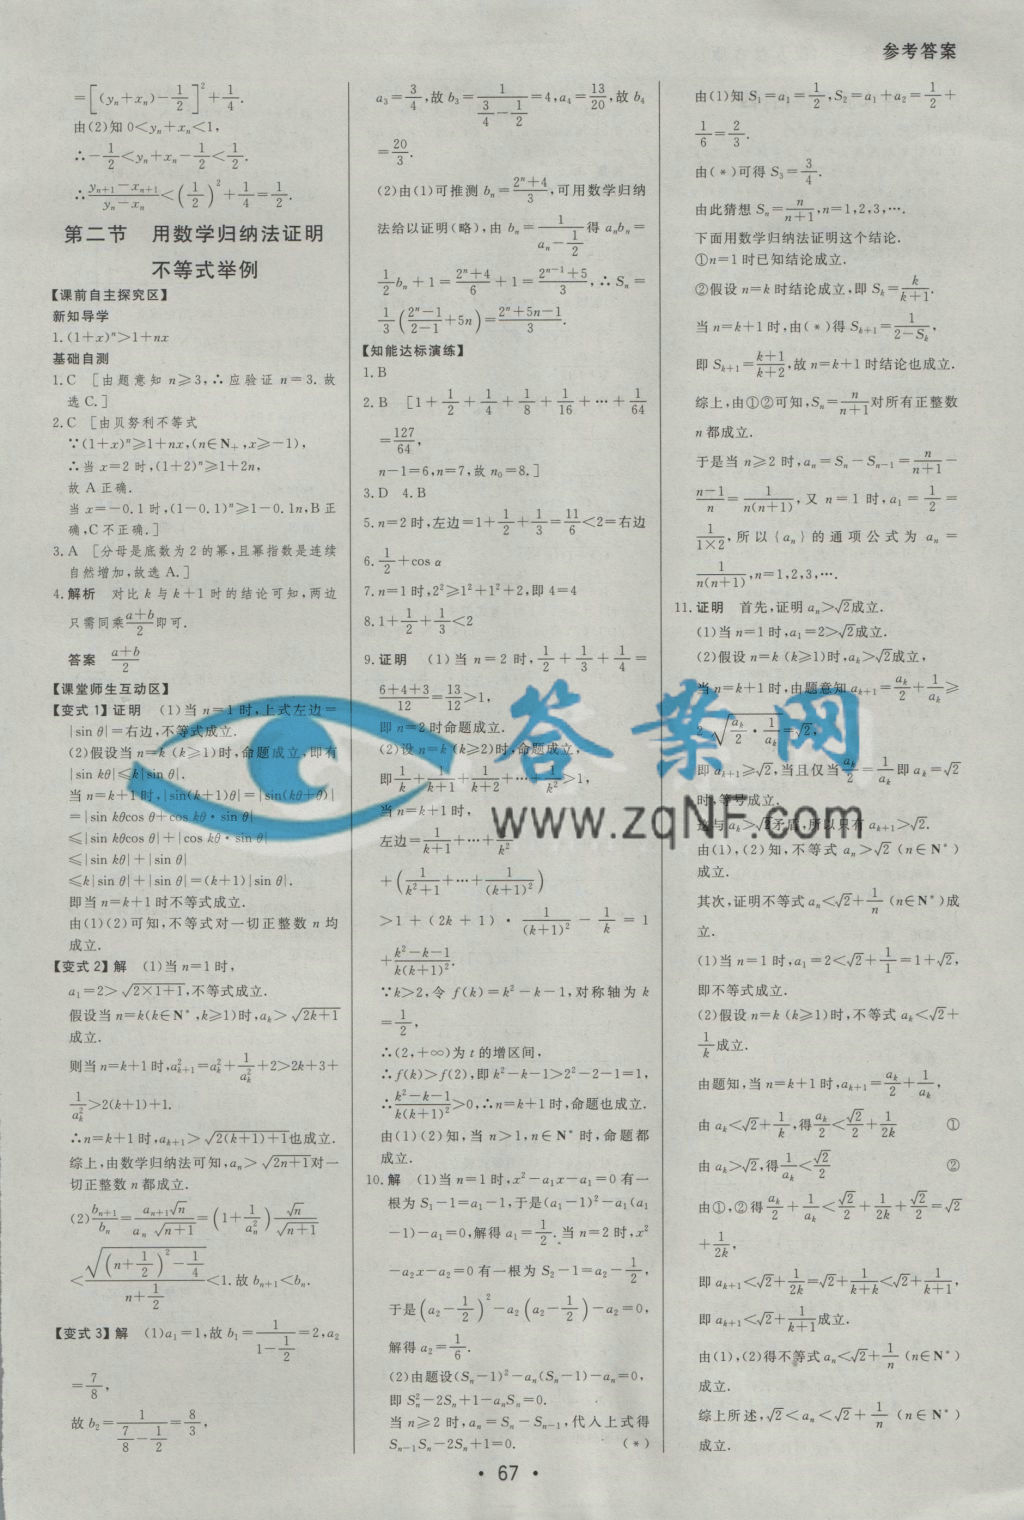 参考答案
=[(yₙ+xₙ)-1/2]²+1/4.
由(2)知0<yₙ+xₙ<1,
∴-1/2<yₙ+xₙ-1/2<1/2.
∴(yₙ₊₁-xₙ₊₁)/(yₙ-xₙ)<(1/2)²+1/4=1/2.
第二节 用数学归纳法证明
不等式举例
【课前自主探究区】
新知导学
1.(1+x)ⁿ>1+nx
基础自测
1.C [由题意知n≥3,∴应验证n=3.故
选C.]
2.C [由贝努利不等式
∵(1+x)ⁿ≥1+nx,(n∈N₊,x≥-1),
∴当x=2时,(1+2)ⁿ≥1+2n,
故A正确.
当x=-0.1时,(1-0.1)ⁿ≥1-0.1n,B正
确,C不正确.]
3.A [分母是底数为2的幂,且幂指数是连续
自然增加,故选A.]
4.解析 对比k与k+1时的结论可知,两边
只需同乘(a+b)/2即可.
答案 (a+b)/2
【课堂师生互动区】
【变式1】证明 (1)当n=1时,上式左边=
|sin θ|=右边,不等式成立.
(2)假设当n=k(k≥1)时,命题成立,即有
|sin kθ|≤k|sin θ|.
当n=k+1时,|sin(k+1)θ|=|sin(kθ+θ)|
=|sin kθcos θ+cos kθ·sin θ|
≤|sin kθcos θ|+|cos kθ·sin θ|
≤|sin kθ|+|sin θ|
≤k|sin θ|+|sin θ|=(k+1)|sin θ|.
即当n=k+1时不等式成立.
由(1)(2)可知,不等式对一切正整数n均
成立.
【变式2】解 (1)当n=1时,
a₁=2>√(2×1+1),不等式成立.
假设当n=k(k∈N*,k≥1)时,aₖ>√(2k+1)
成立.
则当n=k+1时,a²ₖ₊₁=a²ₖ+1/a²ₖ+2>2k+3+
1/a²ₖ>2(k+1)+1.
∴n=k+1时,aₖ₊₁>√(2(k+1)+1)也成立.
综上,由数学归纳法可知,aₙ>√(2n+1)对一
切正整数n都成立.
(2)bₙ₊₁/bₙ=aₙ₊₁√n/(aₙ√(n+1))=(1+1/a²ₙ)√n/√(n+1)
<√((n+1/2)²-1/4)/(n+1/2)<1.故bₙ₊₁<bₙ.
【变式3】解 (1)a₁=1,故b₁=1/(1-1/2)=2,a₂
=7/8,
故b₂=1/(7/8-1/2)=8/3,
a₃=3/4,故b₃=1/(3/4-1/2)=4,a₄=13/20,故b₄
=20/3.
(2)由(1)可推测bₙ=(2ⁿ+4)/3,可用数学归纳
法给以证明(略),由bₙ=1/(aₙ-1/2)得aₙbₙ=
1/2bₙ+1=(2ⁿ+4)/6+1=(2ⁿ⁻¹+5)/3,∴Sₙ=
1/3((2ⁿ-1)/(2-1)+5n)=(2ⁿ+5n-1)/3.
【知能达标演练】
1.B
2.B [1+1/2+1/4+1/8+1/16+…+1/64
=127/64,
n-1=6,n=7,故n₀=8.]
3.D 4.B
5.n=2时,左边=1+1/2+1/3=11/6<2=右边
6.1/2+cos α
7.n=1时,2²≥1²+1²+2,即4=4
8.1+1/2+1/3<2
9.证明 (1)当n=2时,1/2+1/3+1/4=
(6+4+3)/12=13/12>1,
即n=2时命题成立.
(2)设n=k(k≥2)时,命题成立,
即1/k+1/(k+1)+1/(k+2)+…+1/k²>1,
当n=k+1时,
左边=1/(k+1)+…+1/k²
+(1/(k²+1)+…+1/(k+1)²)
>1+(2k+1)·1/(k+1)²-1/k=1
+(k²-k-1)/(k(k+1)²).
∵k>2,令f(k)=k²-k-1,对称轴为k
=1/2,
∴(2,+∞)为t的增区间,
∴f(k)>f(2),即k²-k-1>2²-2-1=1,
∴(k²-k-1)/(k(k+1)²)>0,∴n=k+1时,命题也成立.
由(1)(2)知,当n>1,n∈N*时,命题都
成立.
10.解 (1)当n=1时,x²-a₁x-a₁=0有一
根为S₁-1=a₁-1,于是(a₁-1)²-a₁(a₁
-1)-a₁=0,解得a₁=1/2.当n=2时,x²
-a₂x-a₂=0有一根为S₂-1=a₂-1/2,
于是(a₂-1/2)²-a₂(a₂-1/2)-a₂=0,
解得a₂=1/6.
(2)由题设(Sₙ-1)²-aₙ(Sₙ-1)-aₙ=0,
即S²ₙ-2Sₙ+1-aₙSₙ=0.
当n≥2时,aₙ=Sₙ-Sₙ₋₁,代入上式得
Sₙ₋₁Sₙ-2Sₙ+1=0. (*)
由(1)知S₁=a₁=1/2,S₂=a₁+a₂=1/2+
1/6=2/3.
由(*)可得S₃=3/4.
由此猜想Sₙ=n/(n+1),n=1,2,3,….
下面用数学归纳法证明这个结论.
①n=1时已知结论成立.
②假设n=k时结论成立,即Sₖ=k/(k+1).
当n=k+1时,由(*)得Sₖ₊₁=1/(2-Sₖ),
即Sₖ₊₁=(k+1)/(k+2),故n=k+1时结论也成立.
综上,由①②可知,Sₙ=n/(n+1)对所有正整数
n都成立.
于是当n≥2时,aₙ=Sₙ-Sₙ₋₁=n/(n+1)-
(n-1)/n=1/(n(n+1)),又n=1时,a₁=1/2=
1/(1×2),所以{aₙ}的通项公式为aₙ=
1/(n(n+1)),n=1,2,3,….
11.证明 首先,证明aₙ>√2成立.
(1)当n=1时,a₁=2>√2成立.
(2)假设n=k(k≥1)时,aₖ>√2成立,
当n=k+1时,由题意知aₖ₊₁=aₖ/2+1/aₖ≥
2√(aₖ/2·1/aₖ)=√2,
即aₖ₊₁≥√2,当且仅当aₖ/2=1/aₖ即aₖ=√2
时,等号成立.
这与aₖ>√2矛盾,所以只有aₖ₊₁>√2.
由(1),(2)知,不等式aₙ>√2(n∈N*)
成立.
其次,证明不等式aₙ<√2+1/n(n∈N*)成
立.
(1)当n=1时,a₁=2<√2+1/1=1+√2,
即不等式成立.
(2)假设n=k(k≥1)时,不等式aₖ<√2+
1/k成立.
由题知,当n=k+1时,aₖ₊₁=aₖ/2+1/aₖ,
由aₖ<√2+1/k,得aₖ/2<√2/2+1/2k ①
由aₖ>√2,得1/aₖ<√2/2 ②
由①,②得aₖ/2+1/aₖ<√2/2+1/2k+√2/2=√2
+1/2k,
即aₖ₊₁<√2+1/2k=√2+1/(k+k)<√2+1/(k+1),
即aₖ₊₁<√2+1/(k+1)成立.
由(1),(2)得不等式aₙ<√2+1/n(n∈N*)
成立.
综上所述,√2<aₙ<√2+1/n(n∈N*)
成立.
答案网
www.zqNF.com
·67·